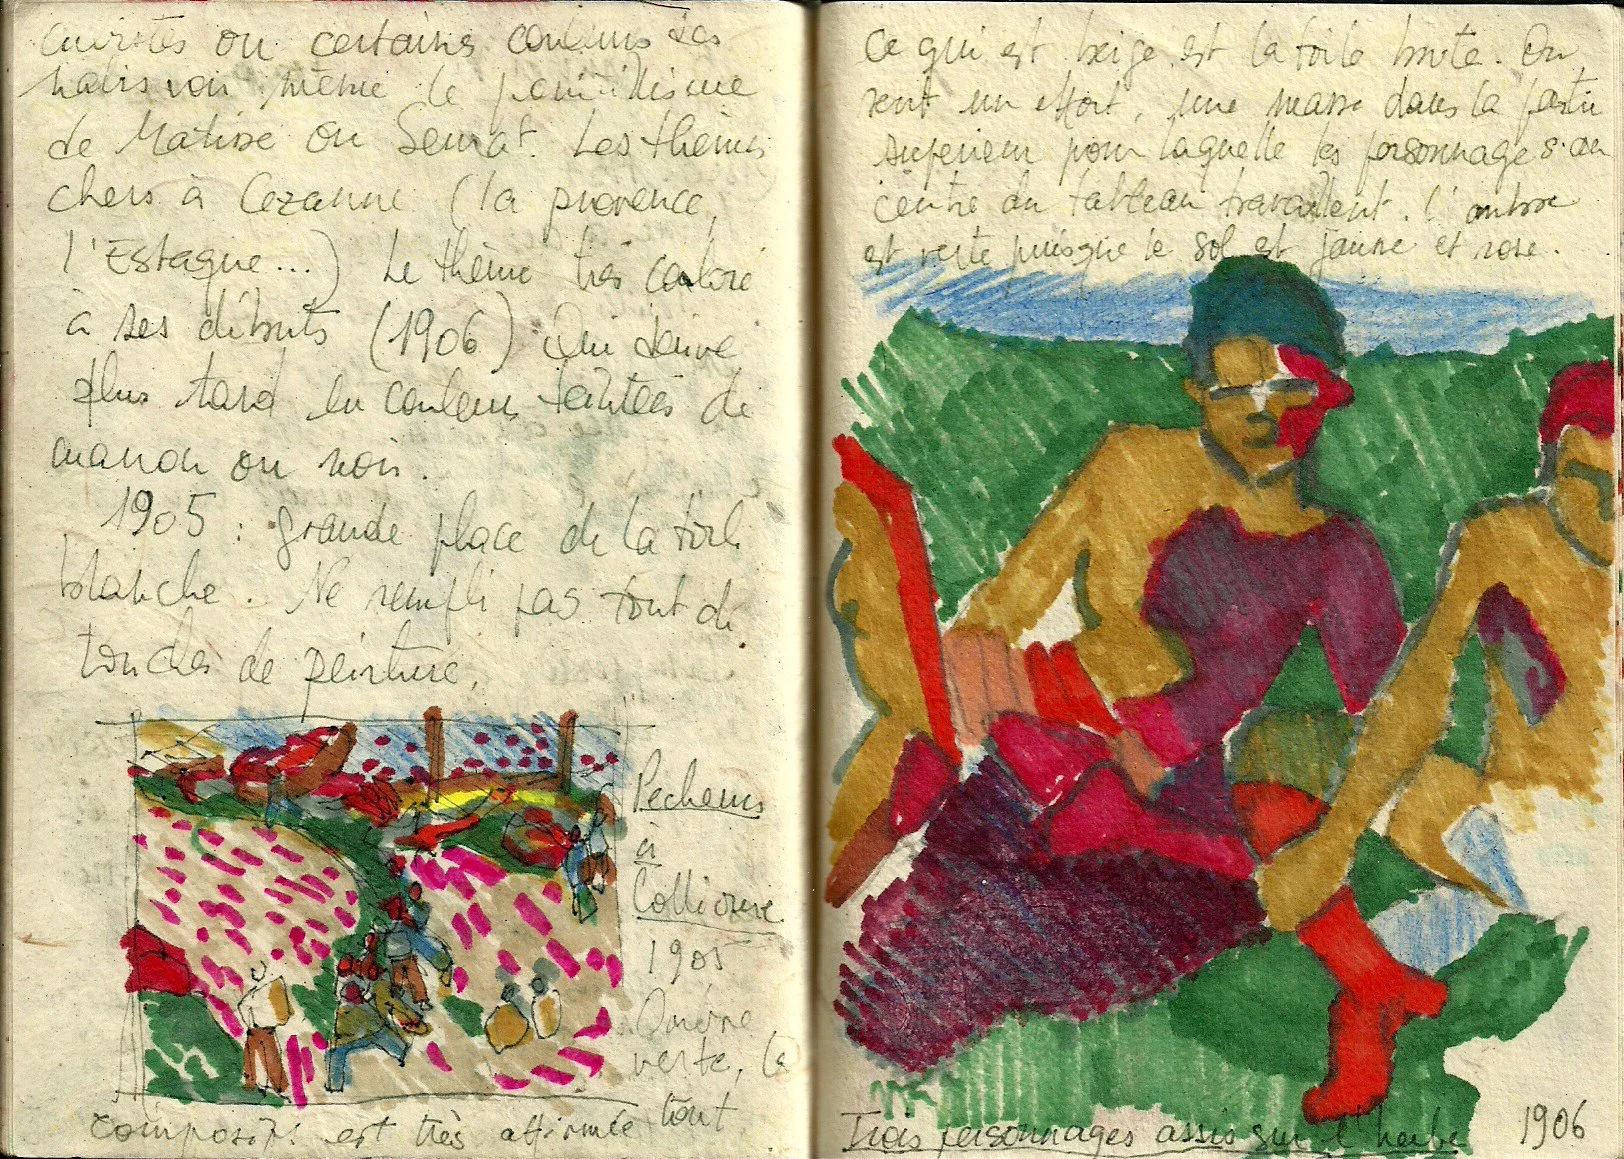 cuivrés ou certains couleurs des
nabis voir même le pointillisme
de Matisse ou Seurat. Les thèmes
chers à Cezanne (la provence,
l'Estaque...) Le thème très coloré
à ses débuts (1906) Qui dérive
plus tard en couleurs teintées de
marron ou noir.
1905 : grande place de la toile
blanche. Ne rempli pas tout de
touches de peinture.
Pecheurs
à
Collioure
1905
verte, la
composit° est très affirmée tout
Ce qui est beige est la toile brute. On
sent un effort, une masse dans la partie
superieur pour laquelle les personnages au
centre du tableau travaillent. l'ombre
est verte puisque le sol est jaune et rose.
Trois personnages assis sur l'herbe 1906